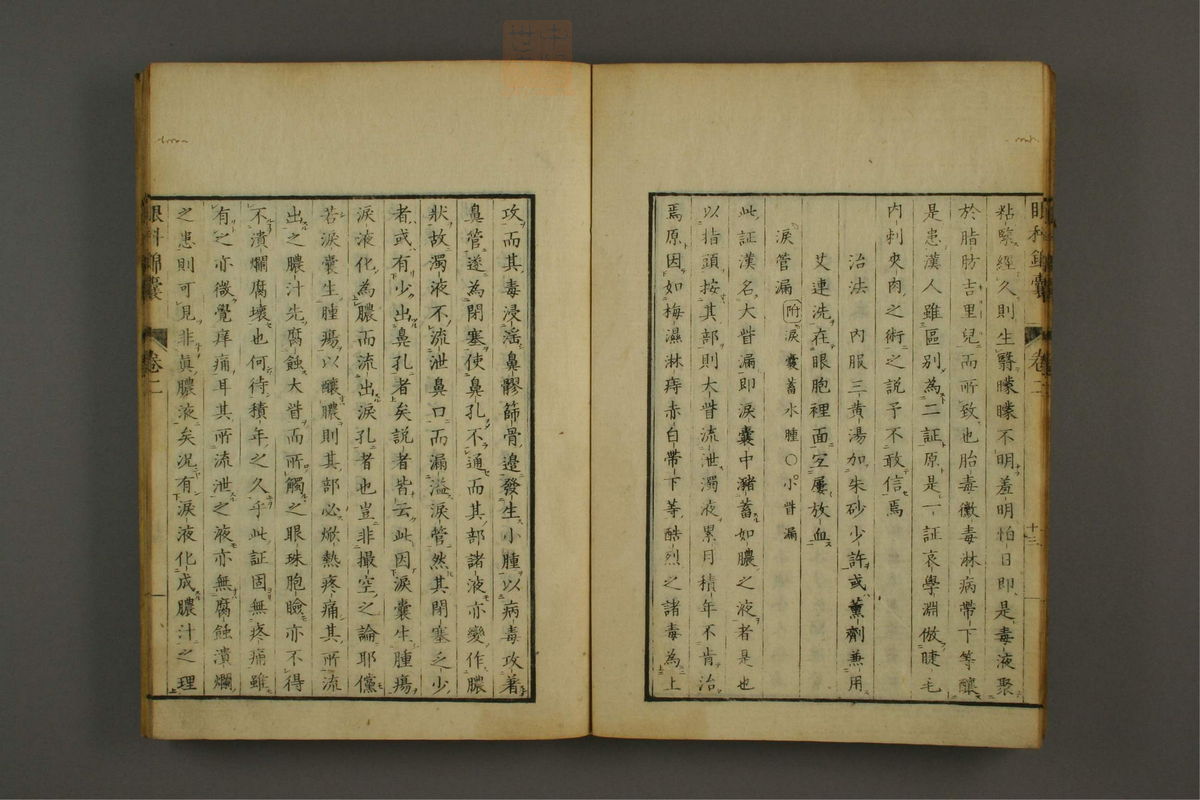 眼科錦囊 卷二 十三
粘緊經久則生翳矇矇不明羞明怕日即是毒液聚
於脂肪吉里兒而所致也胎毒黴毒淋病帶下等釀
是患漢人雖區別為二証原是一証哀學淵倣睫毛
內刺夾肉之術之説予不敢信焉
治法 內服三黄湯加朱砂少許或薰劑兼用
艾連洗在眼胞裡面宜屢放血
淚管漏 附 淚囊蓄水腫〇小眥漏
此証漢名大眥漏即淚囊中瀦蓄如膿之液者是也
以指頭按其部則大眥流泄濁液累月積年不肯治
焉原因如梅濕淋痔赤白帶下等酷烈之諸毒為上
攻而其毒浸淫鼻髎篩骨邉發生小腫以病毒攻著
鼻管遂為閉塞使鼻孔不通而其部諸液亦變作膿
狀故濁液不流泄鼻口而漏溢淚管然其閉塞乏少
者或有少出鼻孔者矣説者皆云此因淚囊生腫瘍
淚液化為膿而流出淚孔者也豈非撮空之論耶儻
若淚囊生腫瘍以釀膿則其部必焮熱疼痛其所流
出之膿汁先腐蝕大眥而所觸之眼珠胞瞼亦不得
不潰爛腐壞也何待積年之久乎此証固無疼痛雖
有之亦微覺痒痛耳其所流泄之液亦無腐蝕潰爛
之患則可見非眞膿液矣况有淚液化成膿汁之理
眼科錦囊 卷二